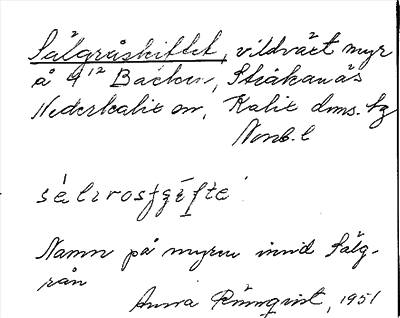 Sälgråskiftet, vildväxt myr
å 9¹² Backen, Stråkanäs
Nederkalix sn, Kalix dms. tg
Norrb. l
Namn på myren invid Sälg-
rån
Anna Rönnqvist, 1951